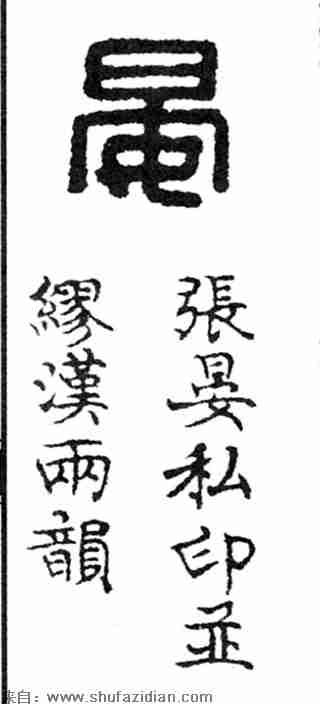 晏
張晏私印並
繆漢兩韻
来自：www.shufazidian.com